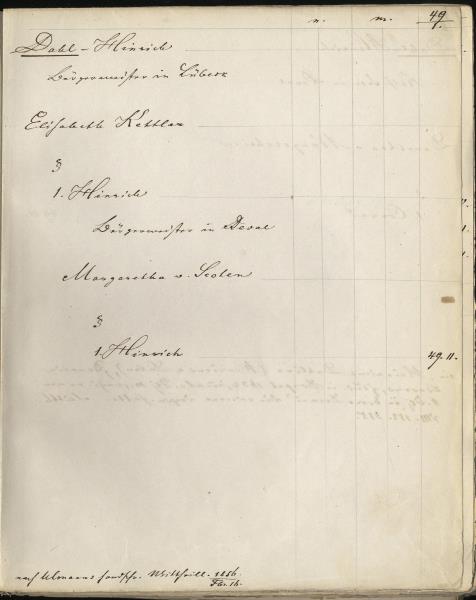 n. m. 49
1.
Dahl - Hinrich
Bürgermeister in Lübeck
Elisabeth Kettler
§
1. Hinrich
Bürgermeister in Reval
Margaretha v. Scoten
§
1. Hinrich 49.11.
nach Ulmanns handschr. 1856